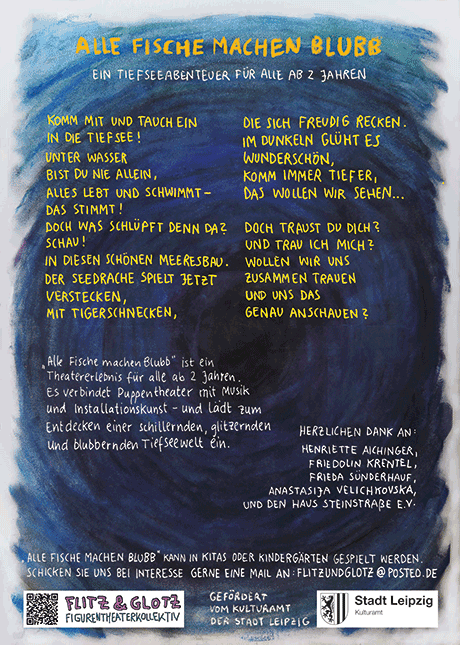 ALLE FISCHE MACHEN BLUBB
EIN TIEFSEEABENTEUER FÜR ALLE AB 2 JAHREN
KOMM MIT UND TAUCH EIN
IN DIE TIEFSEE!
UNTER WASSER
BIST DU NIE ALLEIN,
ALLES LEBT UND SCHWIMMT –
DAS STIMMT!
DOCH WAS SCHLÜPFT DENN DA?
SCHAU!
IN DIESEN SCHÖNEN MEERESBAU.
DER SEEDRACHE SPIELT JETZT
VERSTECKEN,
MIT TIGERSCHNECKEN,
DIE SICH FREUDIG RECKEN.
IM DUNKELN GLÜHT ES
WUNDERSCHÖN,
KOMM IMMER TIEFER,
DAS WOLLEN WIR SEHEN...
DOCH TRAUST DU DICH?
UND TRAU ICH MICH?
WOLLEN WIR UNS
ZUSAMMEN TRAUEN
UND UNS DAS
GENAU ANSCHAUEN?
„Alle Fische machen Blubb" ist ein
Theatererlebnis für alle ab 2 Jahren.
Es verbindet Puppentheater mit Musik
und Installationskunst – und lädt zum
Entdecken einer schillernden, glitzernden
und blubbernden Tiefseewelt ein.
HERZLICHEN DANK AN:
HENRIETTE AICHINGER,
FRIEDOLIN KRENTEL,
FRIEDA SÜNDERHAUF,
ANASTASIJA VELICHKOVSKA,
UND DEN HAUS STEINSTRAẞE E.V.
„ALLE FISCHE MACHEN BLUBB" KANN IN KITAS ODER KINDERGÄRTEN GESPIELT WERDEN.
SCHICKEN SIE UNS BEI INTERESSE GERNE EINE MAIL AN: FLITZUNDGLOTZ@POSTEO.DE
FLITZ & GLOTZ
FIGURENTHEATERKOLLEKTIV
GEFÖRDERT
VOM KULTURAMT
DER STADT LEIPZIG
Stadt Leipzig
Kulturamt